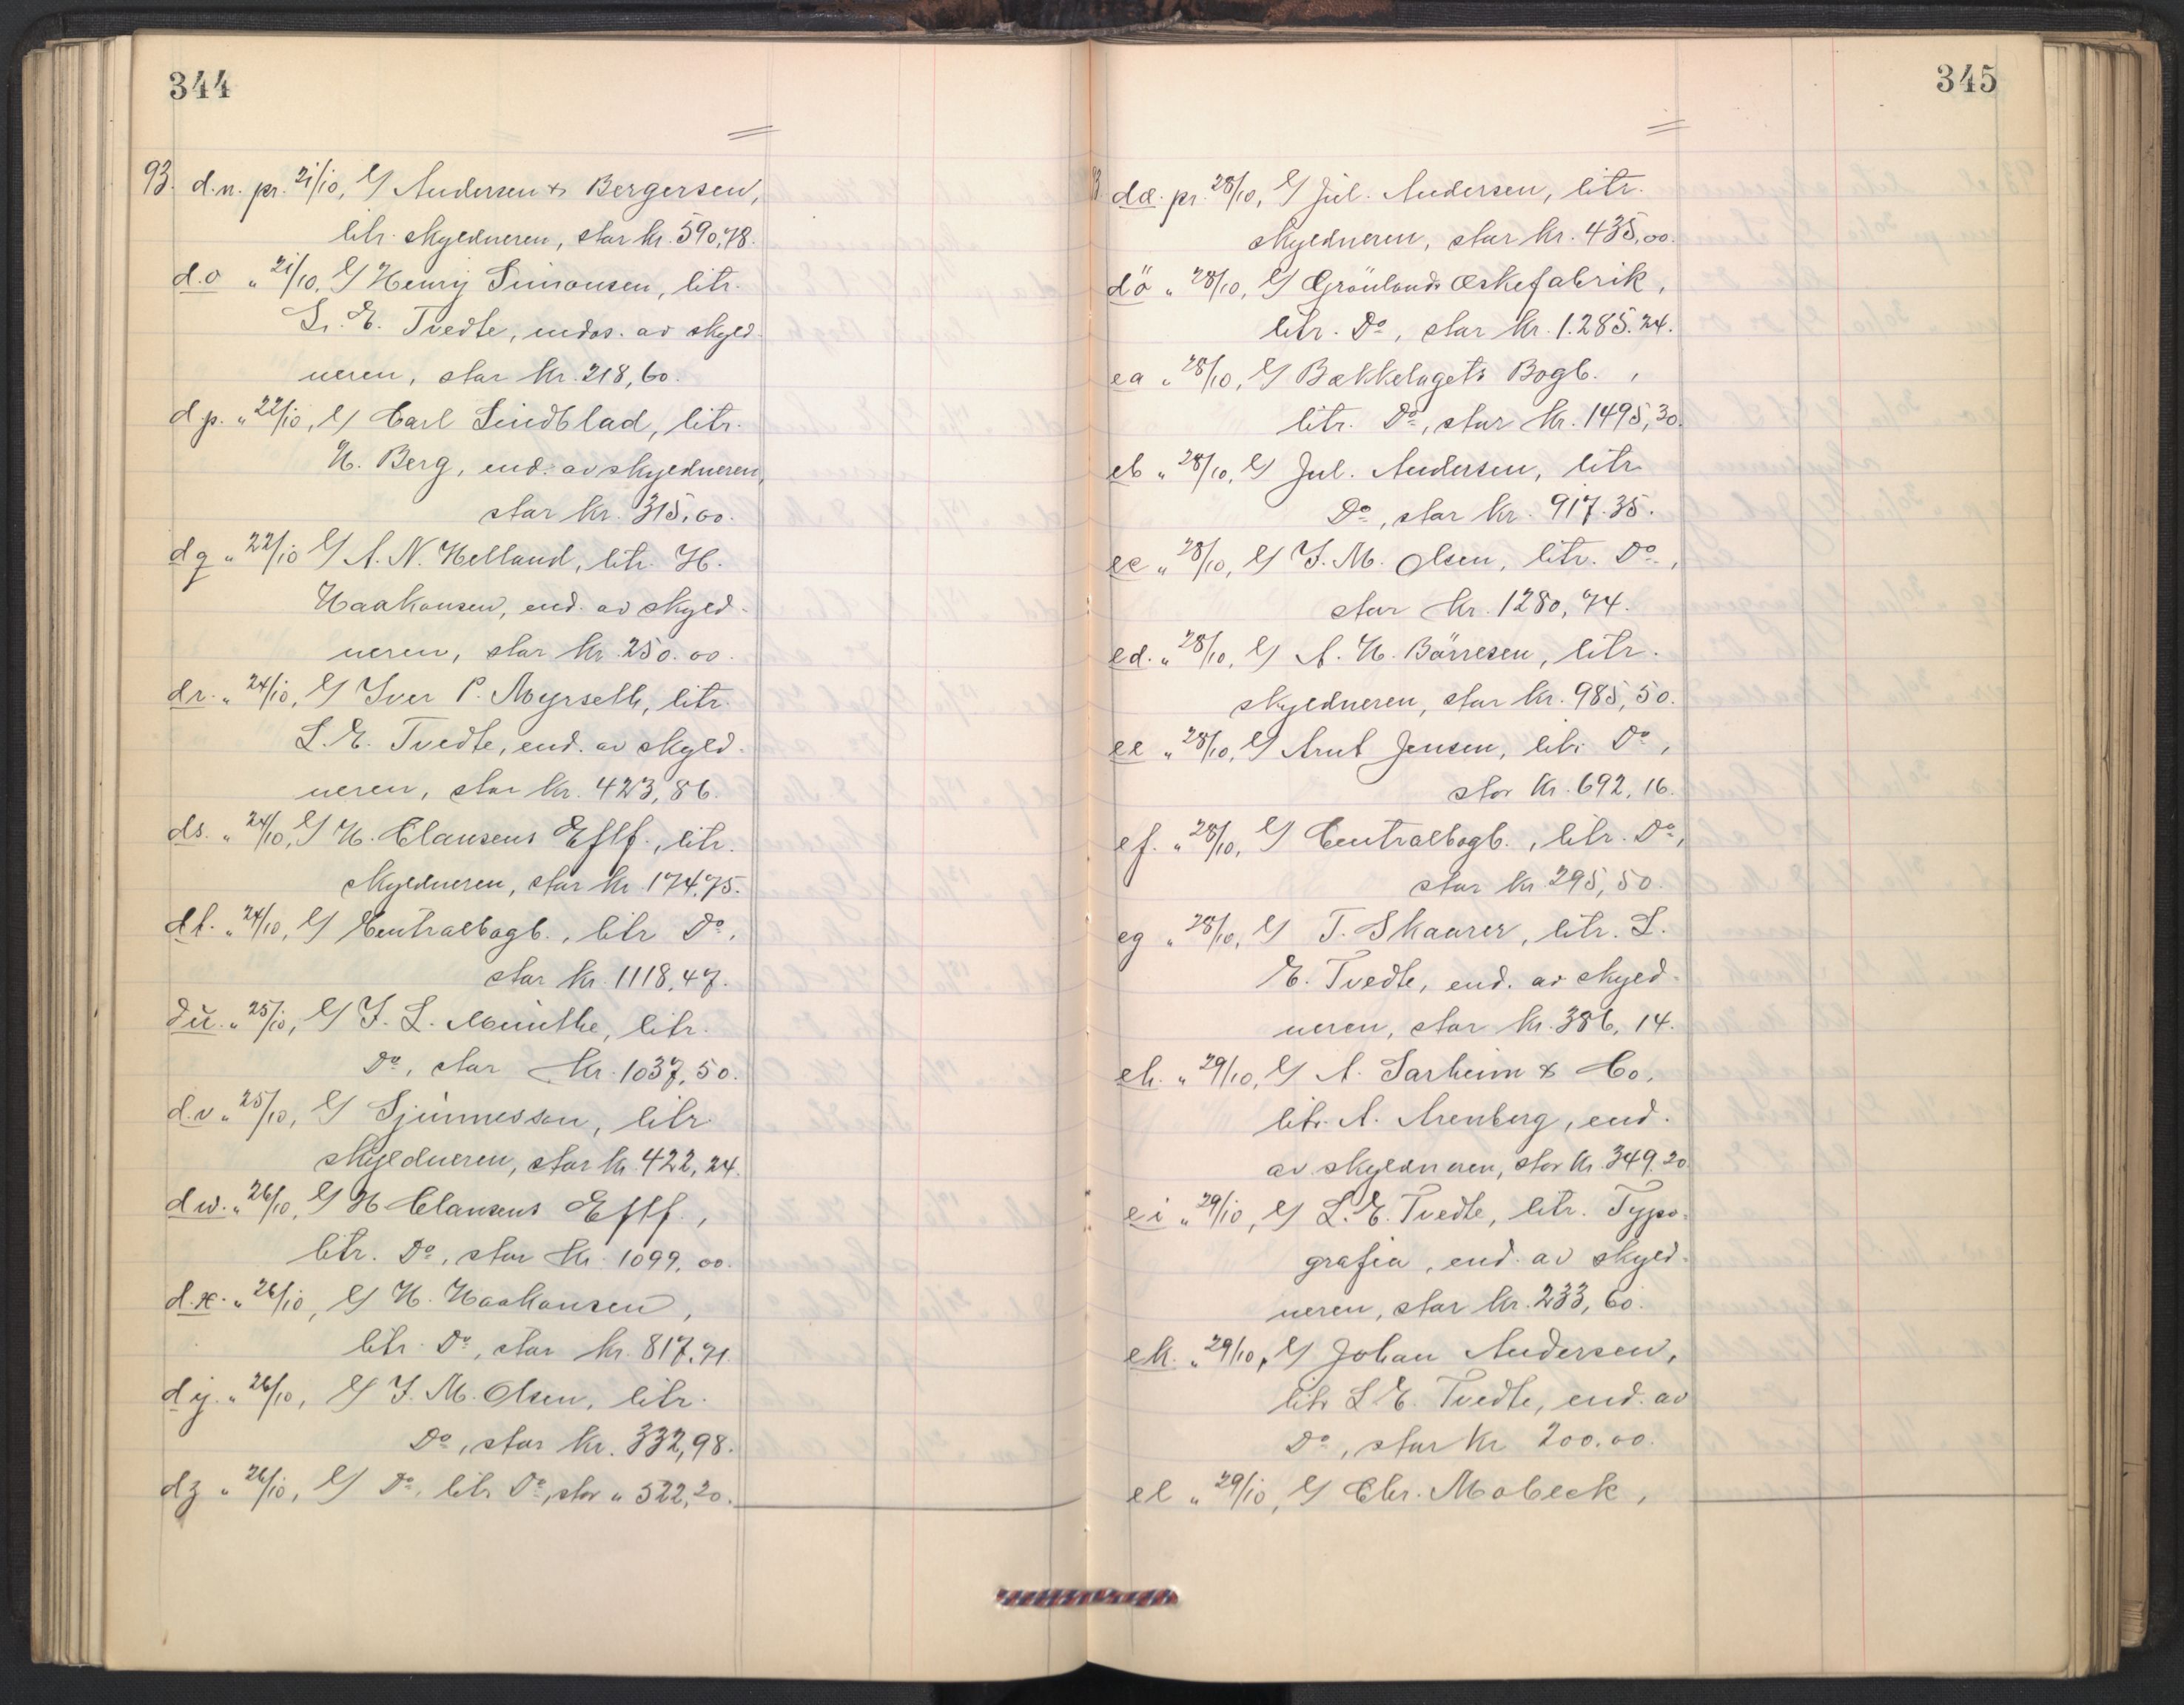 344
93. d.n. pr. 21/10, e/ Andersen & Bergersen,
litr. skyldneren, stor kr. 590,78.
d.o „ 21/10, e/ Henry Simonsen, litr.
L. E. Tvedte, endos. av skyld-
neren, stor kr. 218,60.
d.p. „ 22/10, e/ Carl Lindblad, litr.
N. Berg, end. av skyldneren,
stor kr. 315,00.
dq „ 22/10 e/ A. N. Helland, litr. H.
Haakonsen, end. av skyld-
neren, stor kr. 250.00.
dr. „ 24/10, e/ Iver P. Myrseth, litr.
L. E. Tvedte, end. av skyld-
neren, stor kr. 423,86.
ds. „ 24/10, e/ H. Clausens Eftf., litr.
skyldneren, stor kr. 174,75.
dt. „ 24/10, e/ Centralbogb., litr Do,
stor kr. 1118,47.
du. „ 25/10, e/ I. L. Munthe, litr.
Do, stor kr. 1037,50.
d.v „ 25/10, e/ Sjunnesson, litr.
skyldneren, stor kr. 422,24.
dw. „ 26/10, e/ H Clausens Eftf.,
litr. Do, stor kr. 1099,00.
d.x. „ 26/10, e/ H. Haakonsen,
litr. Do, stor kr. 817,71.
dy. „ 26/10, e/ I. M. Olsen, litr.
Do, stor kr. 332,98.
dz „ 26/10, e/ Do, litr. Do, stor „ 522,20.
345
dæ. pr. 28/10, e/ Jul. Andersen, litr.
skyldneren, stor kr. 435,00.
dö „ 28/10, e/ Grönlands Æskefabrik,
litr. Do, stor kr. 1.285.24.
ea „ 28/10, e/ Bækkelagets Bogb.,
litr. Do, stor kr. 1495,30.
eb „ 28/10, e/ Jul. Andersen, litr
Do, stor kr. 917.35.
ec „ 28/10, e/ I. M. Olsen, litr. Do,
stor kr. 1280,74.
ed. „ 28/10, e/ A. H. Börresen, litr.
skyldneren, stor kr. 985,50.
ee „ 28/10, e/ Arnt Jensen, litr Do,
stor kr. 692,16.
ef. „ 28/10, e/ Centralbogb., litr. Do,
stor kr. 295,50.
eg „ 28/10, e/ T. Skaarer, litr. L.
E. Tvedte, end. av skyld-
neren, stor kr. 386,14.
eh. „ 29/10, e/ A. Sarheim & Co.
litr. A. Arenberg, end.
av skyldneren, stor kr. 349.20
ei „ 29/10, e/ L. E. Tvedte, litr. Typo-
grafia, end. av skyld-
neren, stor kr. 233,60.
ek. „ 29/10, e/ Johan Andersen,
litr L. E. Tvedte, end. av
Do, stor kr 200.00.
el „ 29/10, e/ Chr. Mobeck,